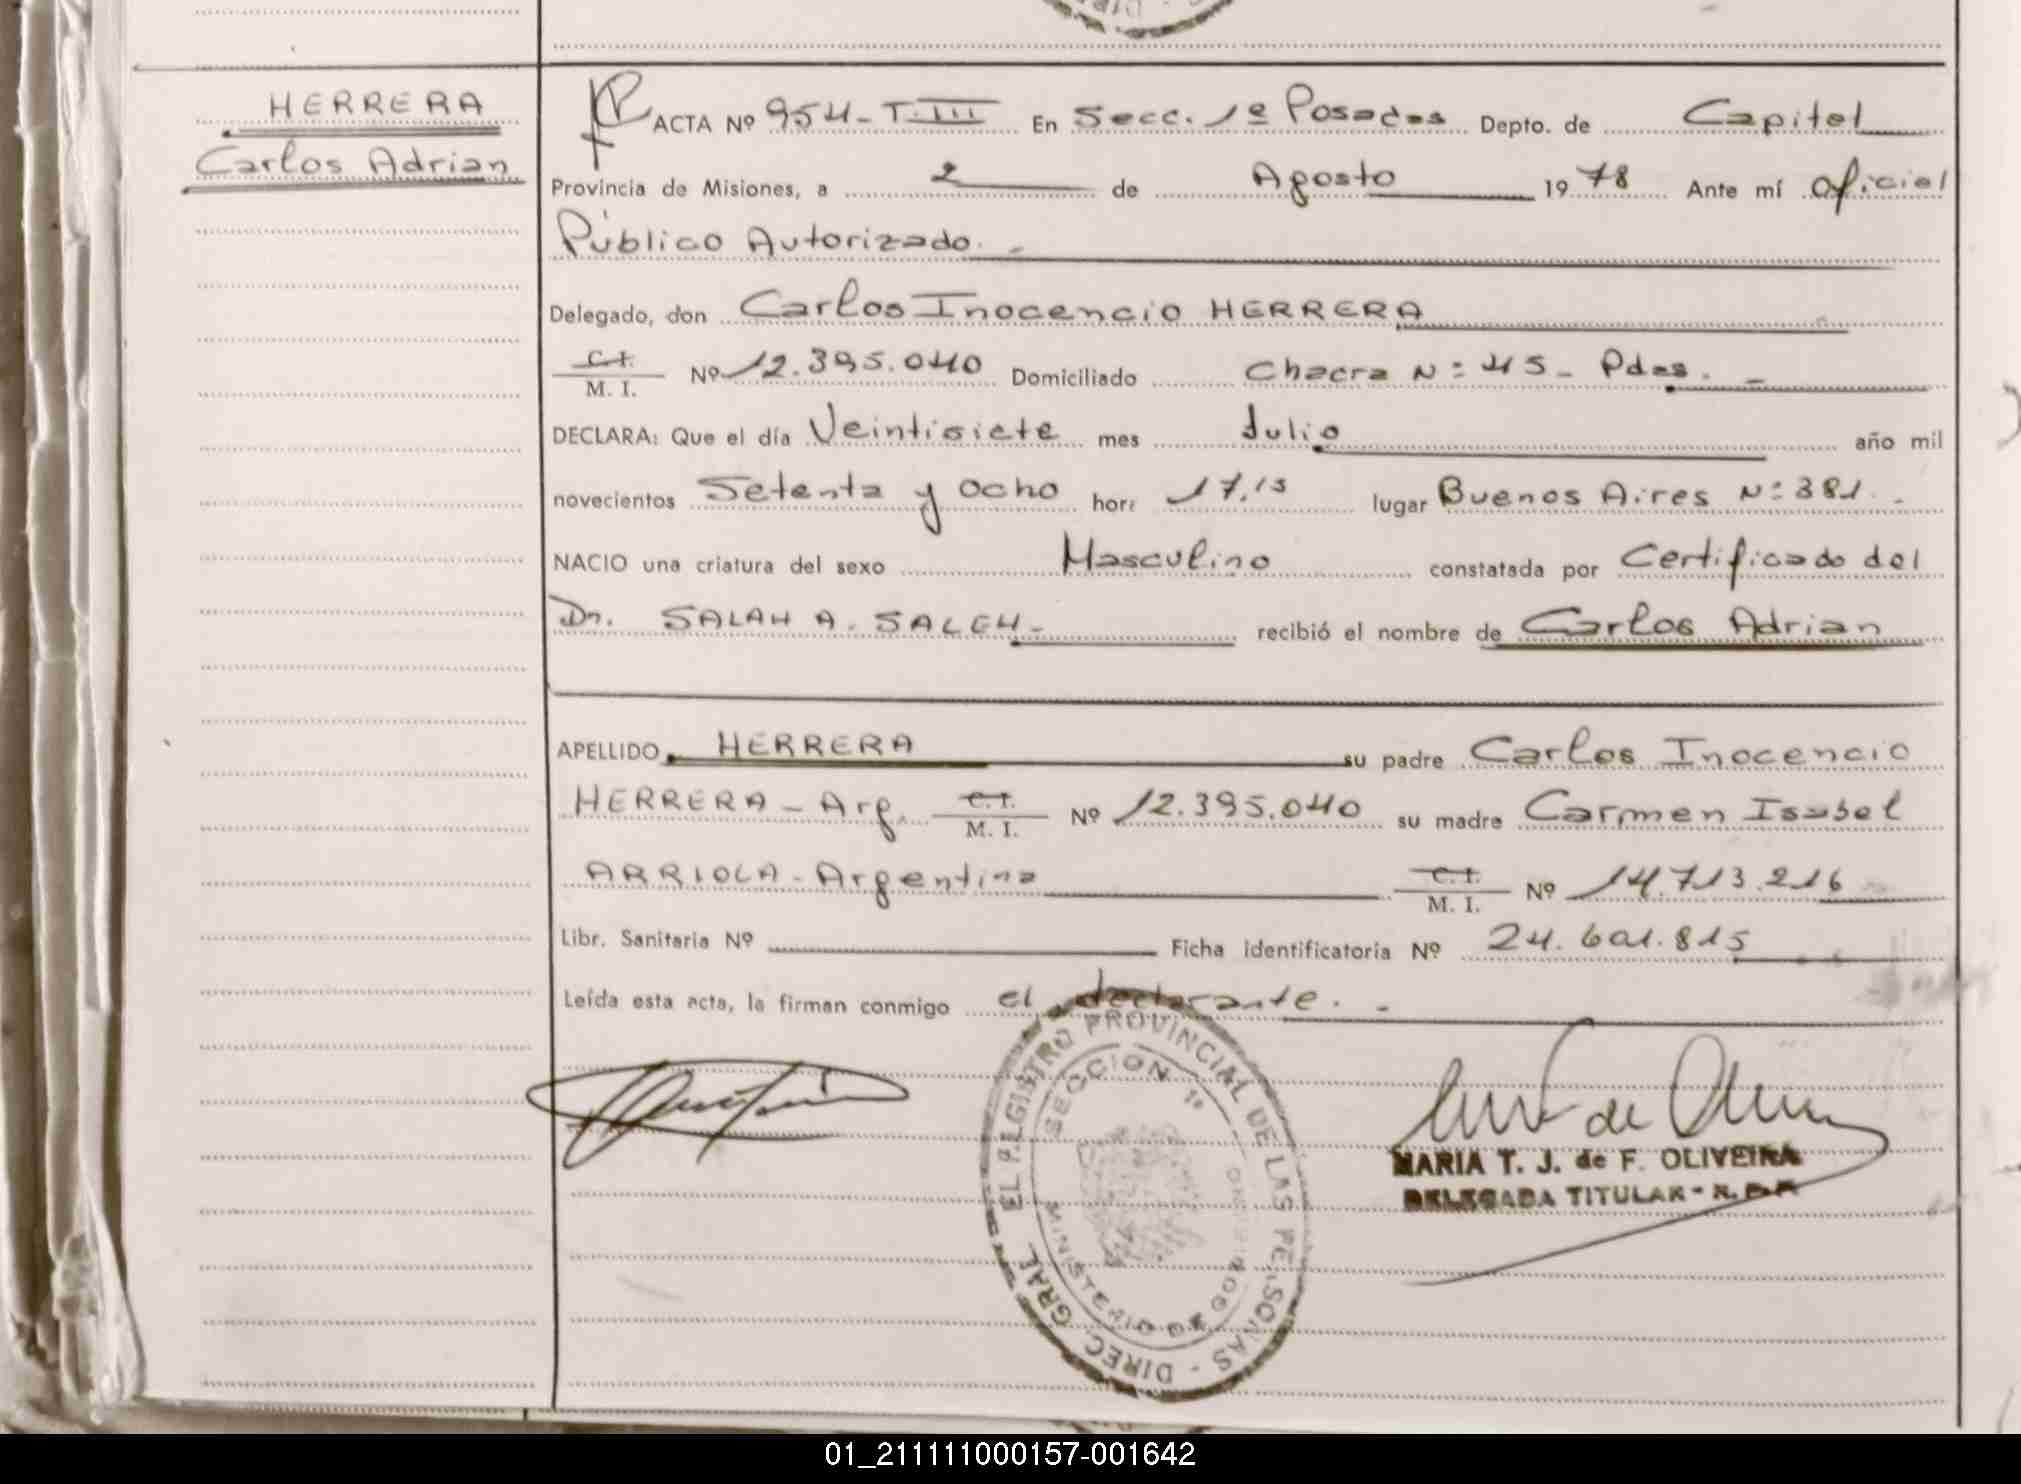 HERRERA
Carlos Adrian
ACTA Nº 954-T.III En Secc. 1º Posadas Depto. de Capital
Provincia de Misiones, a 2 de Agosto 1978 Ante mí Oficial
Público Autorizado. -
Delegado, don Carlos Inocencio HERRERA
C.I. M. I. Nº 12.395.040 Domiciliado Chacra Nº 45 - Pdas. -
DECLARA: Que el día Veintisiete mes Julio año mil
novecientos Setenta y Ocho hora 17,15 lugar Buenos Aires Nº 381. -
NACIO una criatura del sexo Masculino constatada por Certificado del
Dr. SALAH A. SALEH.- recibió el nombre de Carlos Adrian
APELLIDO HERRERA su padre Carlos Inocencio
HERRERA - Arg. C.I. M. I. Nº 12.395.040 su madre Carmen Isabel
ARRIOLA - Argentina C.I. M. I. Nº 14.713.216
Libr. Sanitaria Nº Ficha identificatoria Nº 24.601.815
Leída esta acta, la firman conmigo el declarante. -
DIREC. GRAL. EL REGISTRO PROVINCIAL DE LAS PERSONAS
SECCION 1º
MINISTERIO DE GOBIERNO
MARIA T. J. de F. OLIVEIRA
DELEGADA TITULAR - R. P. P.
01_211111000157-001642